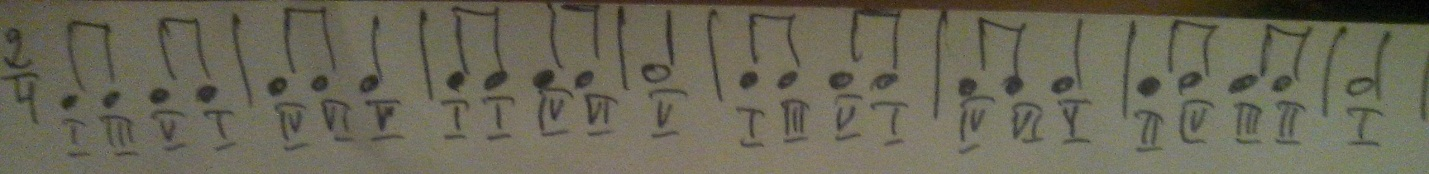 2
4
I III V I IV VI V I I IV VI V I III V I IV VI V II IV III II I